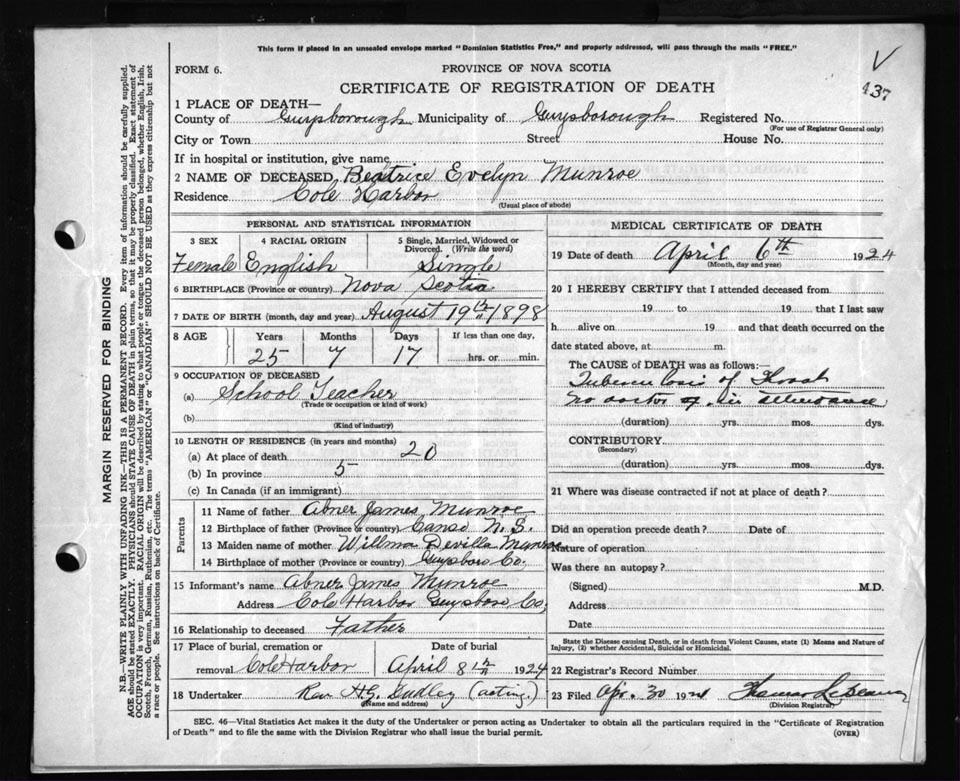 This form if placed in an unsealed envelope marked "Dominion Statistics Free," and properly addressed, will pass through the mails "FREE."
FORM 6.
PROVINCE OF NOVA SCOTIA
CERTIFICATE OF REGISTRATION OF DEATH
437
1 PLACE OF DEATH—
County of Guysborough Municipality of Guysborough Registered No.
(For use of Registrar General only)
City or Town Street House No.
If in hospital or institution, give name
2 NAME OF DECEASED Beatrice Evelyn Munroe
Residence Cole Harbor
(Usual place of abode)
PERSONAL AND STATISTICAL INFORMATION
3 SEX 4 RACIAL ORIGIN 5 Single, Married, Widowed or Divorced. (Write the word)
Female English Single
6 BIRTHPLACE (Province or country) Nova Scotia
7 DATE OF BIRTH (month, day and year) August 19th 1898
8 AGE Years Months Days If less than one day,
25 7 17 hrs. or min.
9 OCCUPATION OF DECEASED
(a) School Teacher
(Trade or occupation or kind of work)
(b)
(Kind of industry)
10 LENGTH OF RESIDENCE (in years and months)
(a) At place of death 20
(b) In province 5
(c) In Canada (if an immigrant)
Parents
11 Name of father Abner James Munroe
12 Birthplace of father (Province or country) Canso N.S.
13 Maiden name of mother Willma Devilla Munroe
14 Birthplace of mother (Province or country) Guysboro Co.
15 Informant's name Abner James Munroe
Address Cole Harbor Guysboro Co.
16 Relationship to deceased Father
17 Place of burial, cremation or removal Cole Harbor
Date of burial April 8th 1924
18 Undertaker Rev. H.G. Dudley (acting.)
(Name and address)
MEDICAL CERTIFICATE OF DEATH
19 Date of death April 6th 1924
(Month, day and year)
20 I HEREBY CERTIFY that I attended deceased from
19 to 19 that I last saw
h alive on 19 and that death occurred on the
date stated above, at m.
The CAUSE OF DEATH was as follows:—
Tuberculosis of
no doctor in attendance
(duration) yrs. mos. dys.
CONTRIBUTORY
(Secondary)
(duration) yrs. mos. dys.
21 Where was disease contracted if not at place of death?
Did an operation precede death? Date of
Nature of operation
Was there an autopsy?
(Signed) M.D.
Address
Date
State the Disease causing Death, or in death from Violent Causes, state (1) Means and Nature of Injury, (2) whether Accidental, Suicidal or Homicidal.
22 Registrar's Record Number
23 Filed Apr. 30 1924
(Division Registrar)
SEC. 46—Vital Statistics Act makes it the duty of the Undertaker or person acting as Undertaker to obtain all the particulars required in the "Certificate of Registration
of Death" and to file the same with the Division Registrar who shall issue the burial permit.
(OVER)
MARGIN RESERVED FOR BINDING
N.B.—WRITE PLAINLY WITH UNFADING INK—THIS IS A PERMANENT RECORD. Every item of information should be carefully supplied.
AGE should be stated EXACTLY. PHYSICIANS should STATE CAUSE OF DEATH in plain terms, so that it may be properly classified. Exact statement of
OCCUPATION is very important. RACIAL ORIGIN will be described by stating to what people or tongue the deceased person belonged, whether English, Irish,
Scotch, French, German, Russian, Ruthenian, etc. The terms "AMERICAN" or "CANADIAN" SHOULD NOT BE USED as they express citizenship but not
a race or people. See instructions on back of Certificate.